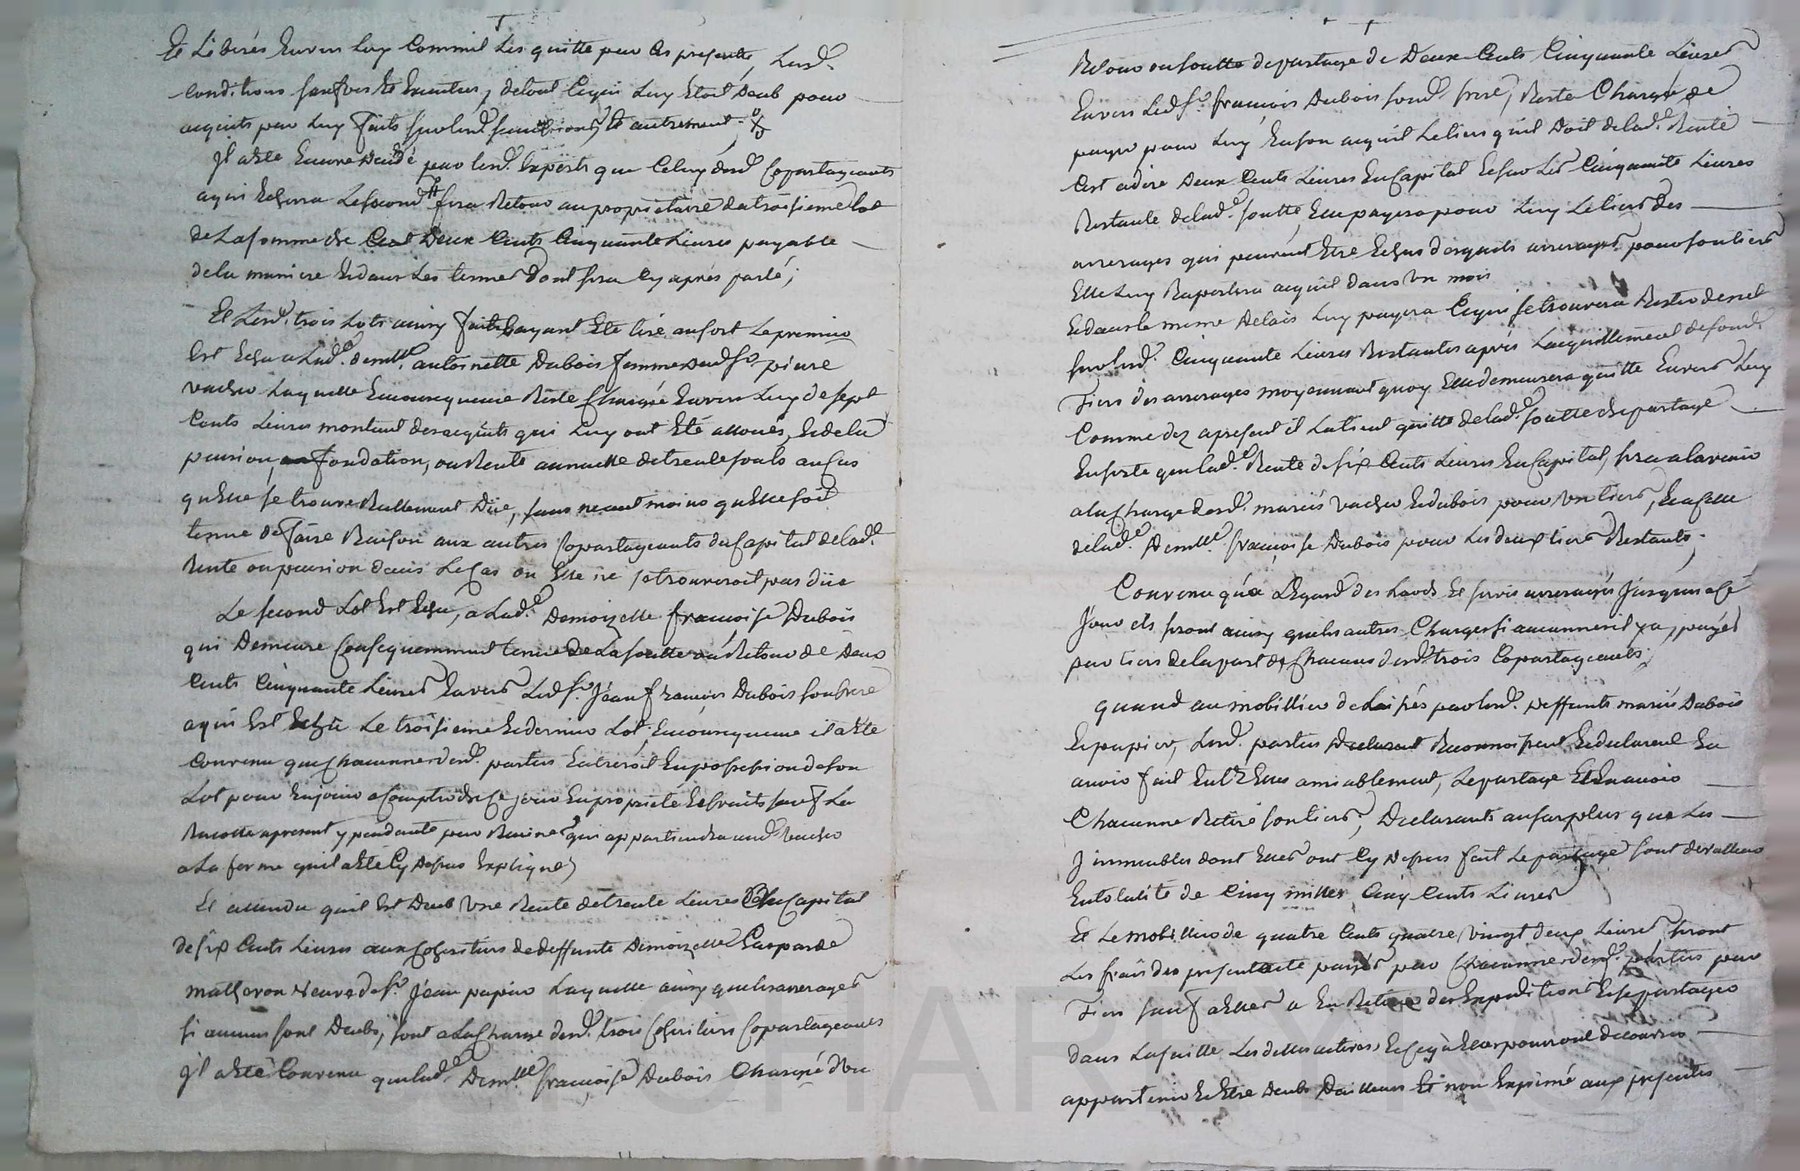 Et Libérés Envers luy Comme il les quitte par Ces presentes, Lesd.
conditions sauf et Executées, de tout Ce qui luy étoit Deub pour
acquits par luy faits sur lesd. successions Et autrement
Il a été Encore Décidé par lesd. Experts que Celuy desd. Copartageants
a qui Echerra Le second fera Retour au proprietaire du troisieme lot
de La somme de Deux Cents Cinquante Livres payable
de la maniere Et dans les termes Dont sera Cy après parlé;
Et Lesd. trois Lots ainsy faits ayant Eté tiré au sort Le premier
Est Echu a Lad. demlle. antoinette Dubois femme dud. sr. pierre
vacher Laquelle En Consequence Reste Chargée Envers luy de sept
Cents Livres montant des acquits qui luy ont Eté alloués, Et de la
pension, fondation, ou Rente annuelle de trente sols au Cas
qu'Elle se trouve Reellement Düe, sans neant moins qu'Elle soit
tenue de faire Raison aux autres Copartageants du Capital de lad.
Rente ou pension dans Le Cas ou Elle ne se trouveroit pas düe
Le second Lot Est Echu, a Lad. Demoizelle francoise Dubois
qui Demeure Consequemment tenue de La soutte ou Retour de Deux
Cents Cinquante Livres Envers Led. sr. Jean francois Dubois son frere
a qui Est Echu Le troisieme Et dernier Lot. En Consequence il a été
Convenu que Chacune desd. parties Entreroit En possession de son
Lot pour En jouir a Compter de Ce jour En propriété Et fruits sauf La
Recolte apresent y pendante par Racines qui appartiendra aud. vacher
a La forme qu'il a été Cy Dessus Expliqué
Et attendu qu'il Est Deub Une Rente de trente Livres Au Capital
de six Cents Livres aux Coheritiers de deffunte Demoizelle Gasparde
matheron veuve de sr. Jean papier Laquelle ainsy que les arrerages
si aucuns sont Deubs, sont a La Charge desd. trois Coheritiers Copartageants
Il a été Convenu que lad. Demlle. francoise Dubois Chargée d'un
Retour ou soutte de partage de Deux Cents Cinquante Livres
Envers Led. sr. francois Dubois sond. frere, Reste Chargée de
payer pour luy En son acquit Le tiers qu'il Doit de lad. Rente
C'est a dire Deux Cents Livres En Capital Et sur Les Cinquante Livres
Restante de lad. soutte, Elle payera pour luy Le tiers des
arrerages qui peuvent Etre Echus desquels arrerages pour son tiers
Elle luy Raportera acquit dans Un mois
Et dans le meme Delais luy payera Ce qui se trouvera Rester de net
sur lesd. Cinquante Livres Restantes après L'acquittement de sond.
Tiers des arrerages moyennant quoy Elle demeurera quitte Envers luy
Comme dez apresent il La tient quitte de lad. soutte de partage
En sorte que lad. Rente de six Cents Livres En Capital, sera a l'avenir
a la Charge desd. mariés vacher Et dubois pour Un tiers, Et a Celle
de lad. Demlle. francoise Dubois pour Les deux tiers Restants.
Convenu qu'a L'Egard des Lavds Et servis arreragés Jusqu'a Ce
Jour ils seront ainsy que les autres Charges si aucunne il y a, payés
par tiers de la part de Chacuns desd. trois Copartageants;
quand au mobillier delaissés par lesd. deffunts mariés Dubois
Et papier, Lesd. parties Reconnoissent Et declarent En
avoir fait Entr'Elles amiablement, Le partage Et En avoir
Chacunne Retiré son tiers, Declarants au surplus que Les
Immeubles dont Elles ont Cy Dessus fait Le partage sont de valleur
En totalité de Cinq milles Cinq Cents Livres
Et Le mobillier de quatre Cents quatre vingt deux Livres seront
Les frais des presentes payés par Chacunne desd. parties pour
Tiers sauf a Elles a En Retirer des Expeditions Et se partager
dans La suitte Les dettes actives, Et Ce qui a Elles pourroit de
appartenir Et Etre Deub D'ailleurs Et non Exprimé aux presentes